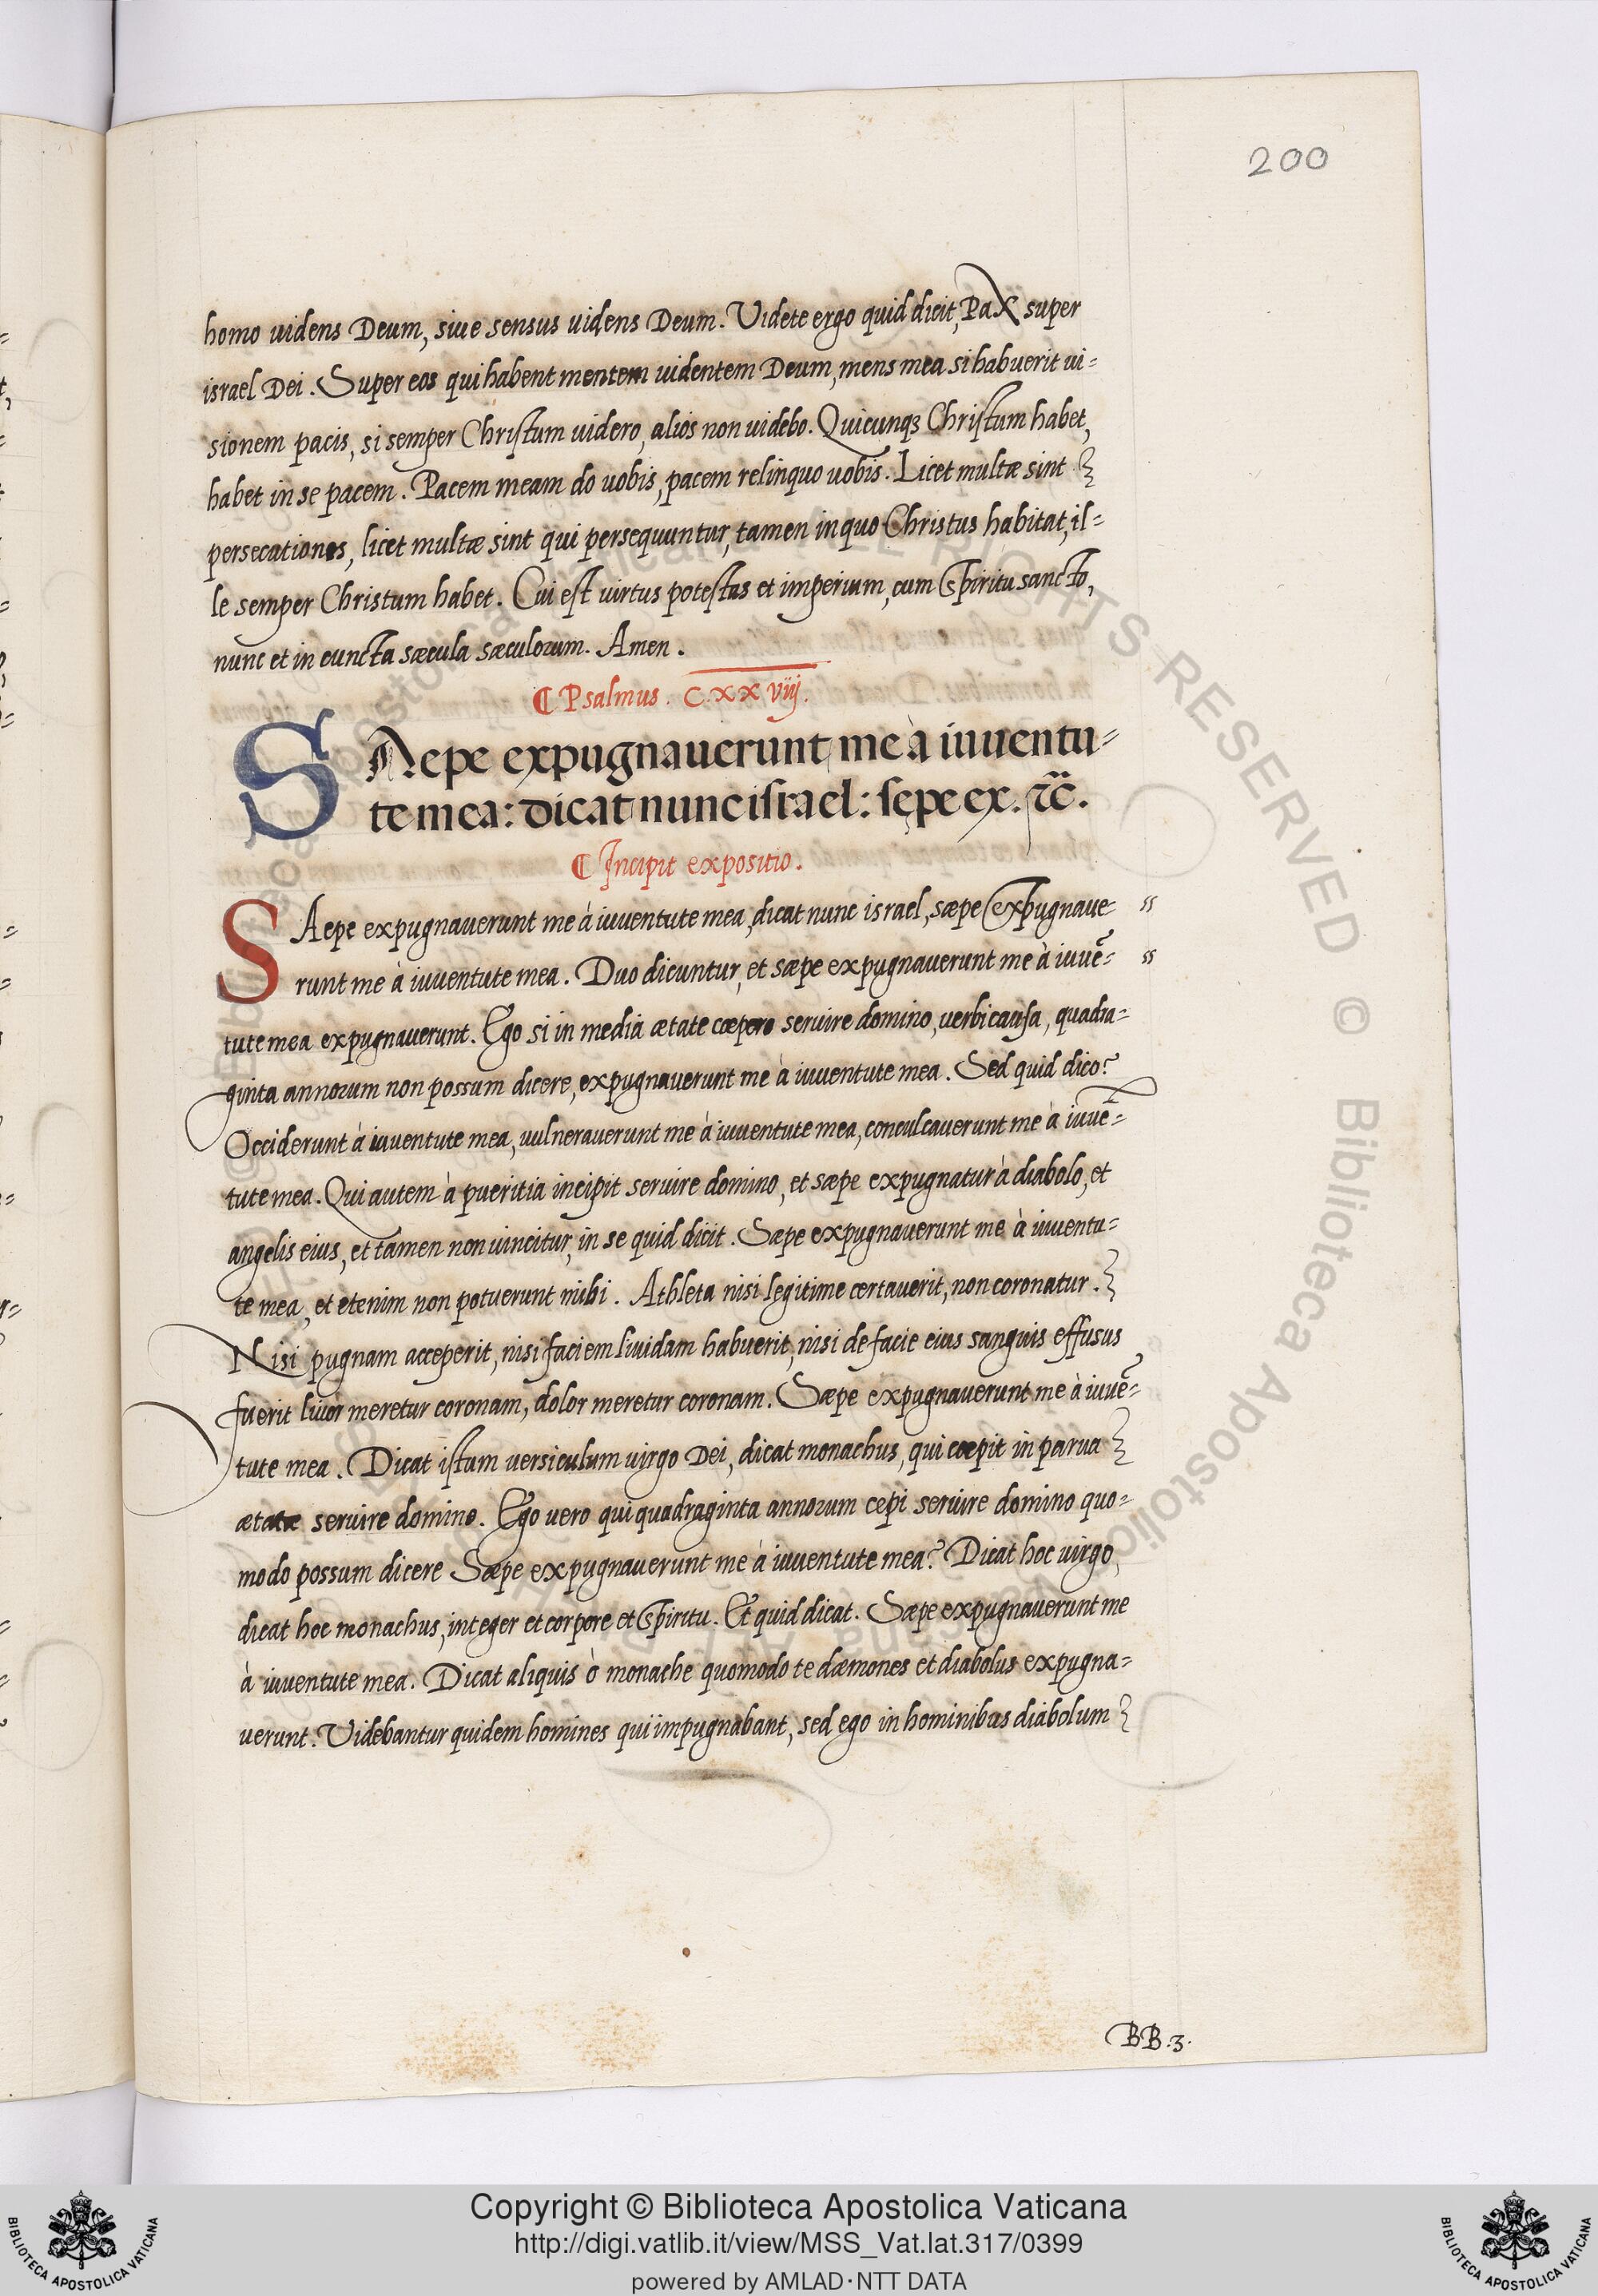 200
homo uidens Deum, siue sensus uidens Deum. Videte ergo quid dicit, PaX super
israel Dei. Super eos qui habent mentem uidentem Deum, mens mea si habuerit ui=
sionem pacis, si semper Christum uidero, alios non uidebo. Quicunqꝫ Christum habet,
habet in se pacem. Pacem meam do uobis, pacem relinquo uobis. Licet multæ sint
persecationes, licet multæ sint qui persequuntur, tamen in quo Christus habitat, il=
le semper Christum habet. Cui est uirtus potestas et imperium, cum Spiritu sancto,
nunc et in cuncta sæcula sæculorum. Amen.
¶ Psalmus. C.XX viij.
SAepe expugnauerunt me à iuuentu=
te mea: dicat nunc israel: sępe ex. &c̃.
¶ Incipit expositio.
SAepe expugnauerunt me à iuuentute mea, dicat nunc israel, sæpe expugnaue-
runt me à iuuentute mea. Duo dicuntur, et sæpe expugnauerunt me à iuuē=
tute mea expugnauerunt. Ego si in media ætate cœpero seruire domino, uerbi causa, quadra=
ginta annorum non possum dicere, expugnauerunt me à iuuentute mea. Sed quid dico?
Occiderunt à iuuentute mea, uulnerauerunt me à iuuentute mea, conculcauerunt me à iuuē=
tute mea. Qui autem à pueritia incipit seruire domino, et sæpe expugnatur à diabolo, et
angelis eius, et tamen non uincitur, in se quid dicit. Sæpe expugnauerunt me à iuuentu=
te mea, et etenim non potuerunt mihi. Athleta nisi legitime certauerit, non coronatur.
Nisi pugnam acceperit, nisi faciem liuidam habuerit, nisi de facie eius sanguis effusus
fuerit liuor meretur coronam, dolor meretur coronam. Sæpe expugnauerunt me à iuuē=
tute mea. Dicat istum uersiculum uirgo Dei, dicat monachus, qui cœpit in parua
ætatæ seruire domino. Ego uero qui quadraginta annorum cepi seruire domino quo=
modo possum dicere Sæpe expugnauerunt me à iuuentute mea? Dicat hoc uirgo,
dicat hoc monachus, integer et corpore et Spiritu. Et quid dicat. Sæpe expugnauerunt me
à iuuentute mea. Dicat aliquis ò monache quomodo te dæmones et diabolus expugna=
uerunt? Videbantur quidem homines qui impugnabant, sed ego in hominibus diabolum
BB.3.
Copyright © Biblioteca Apostolica Vaticana
http://digi.vatlib.it/view/MSS_Vat.lat.317/0399
powered by AMLAD·NTT DATA
BIBLIOTECA APOSTOLICA VATICANA
BIBLIOTECA APOSTOLICA VATICANA